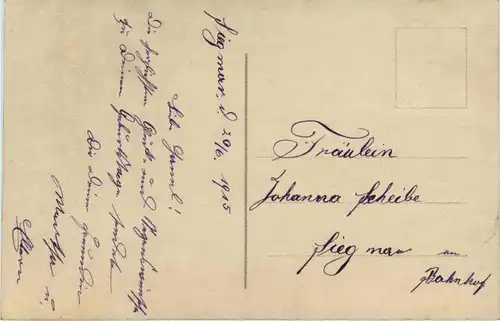 Siegmar, d. 29/6. 1915
Lieb Hannel!
Die herzlichsten Glück- und Segenswünsche
zu Deinem Geburtstage sendet
Dir Deine Freundin
Martha u.
Eltern
Fräulein
Johanna Scheibe
Siegmar
am
Bahnhof